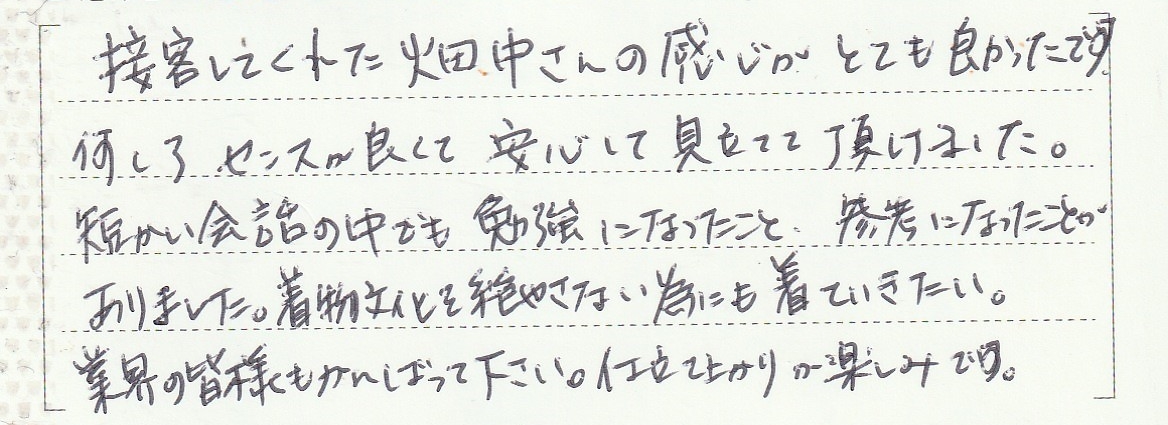 接客してくれた畑中さんの感じがとても良かったです
何しろセンスが良くて安心して見立てて頂けました。
短かい会話の中でも勉強になったこと、参考になったことが
ありました。着物文化を絶やさない為にも着ていきたい。
業界の皆様もがんばって下さい。仕立て上がりが楽しみです。